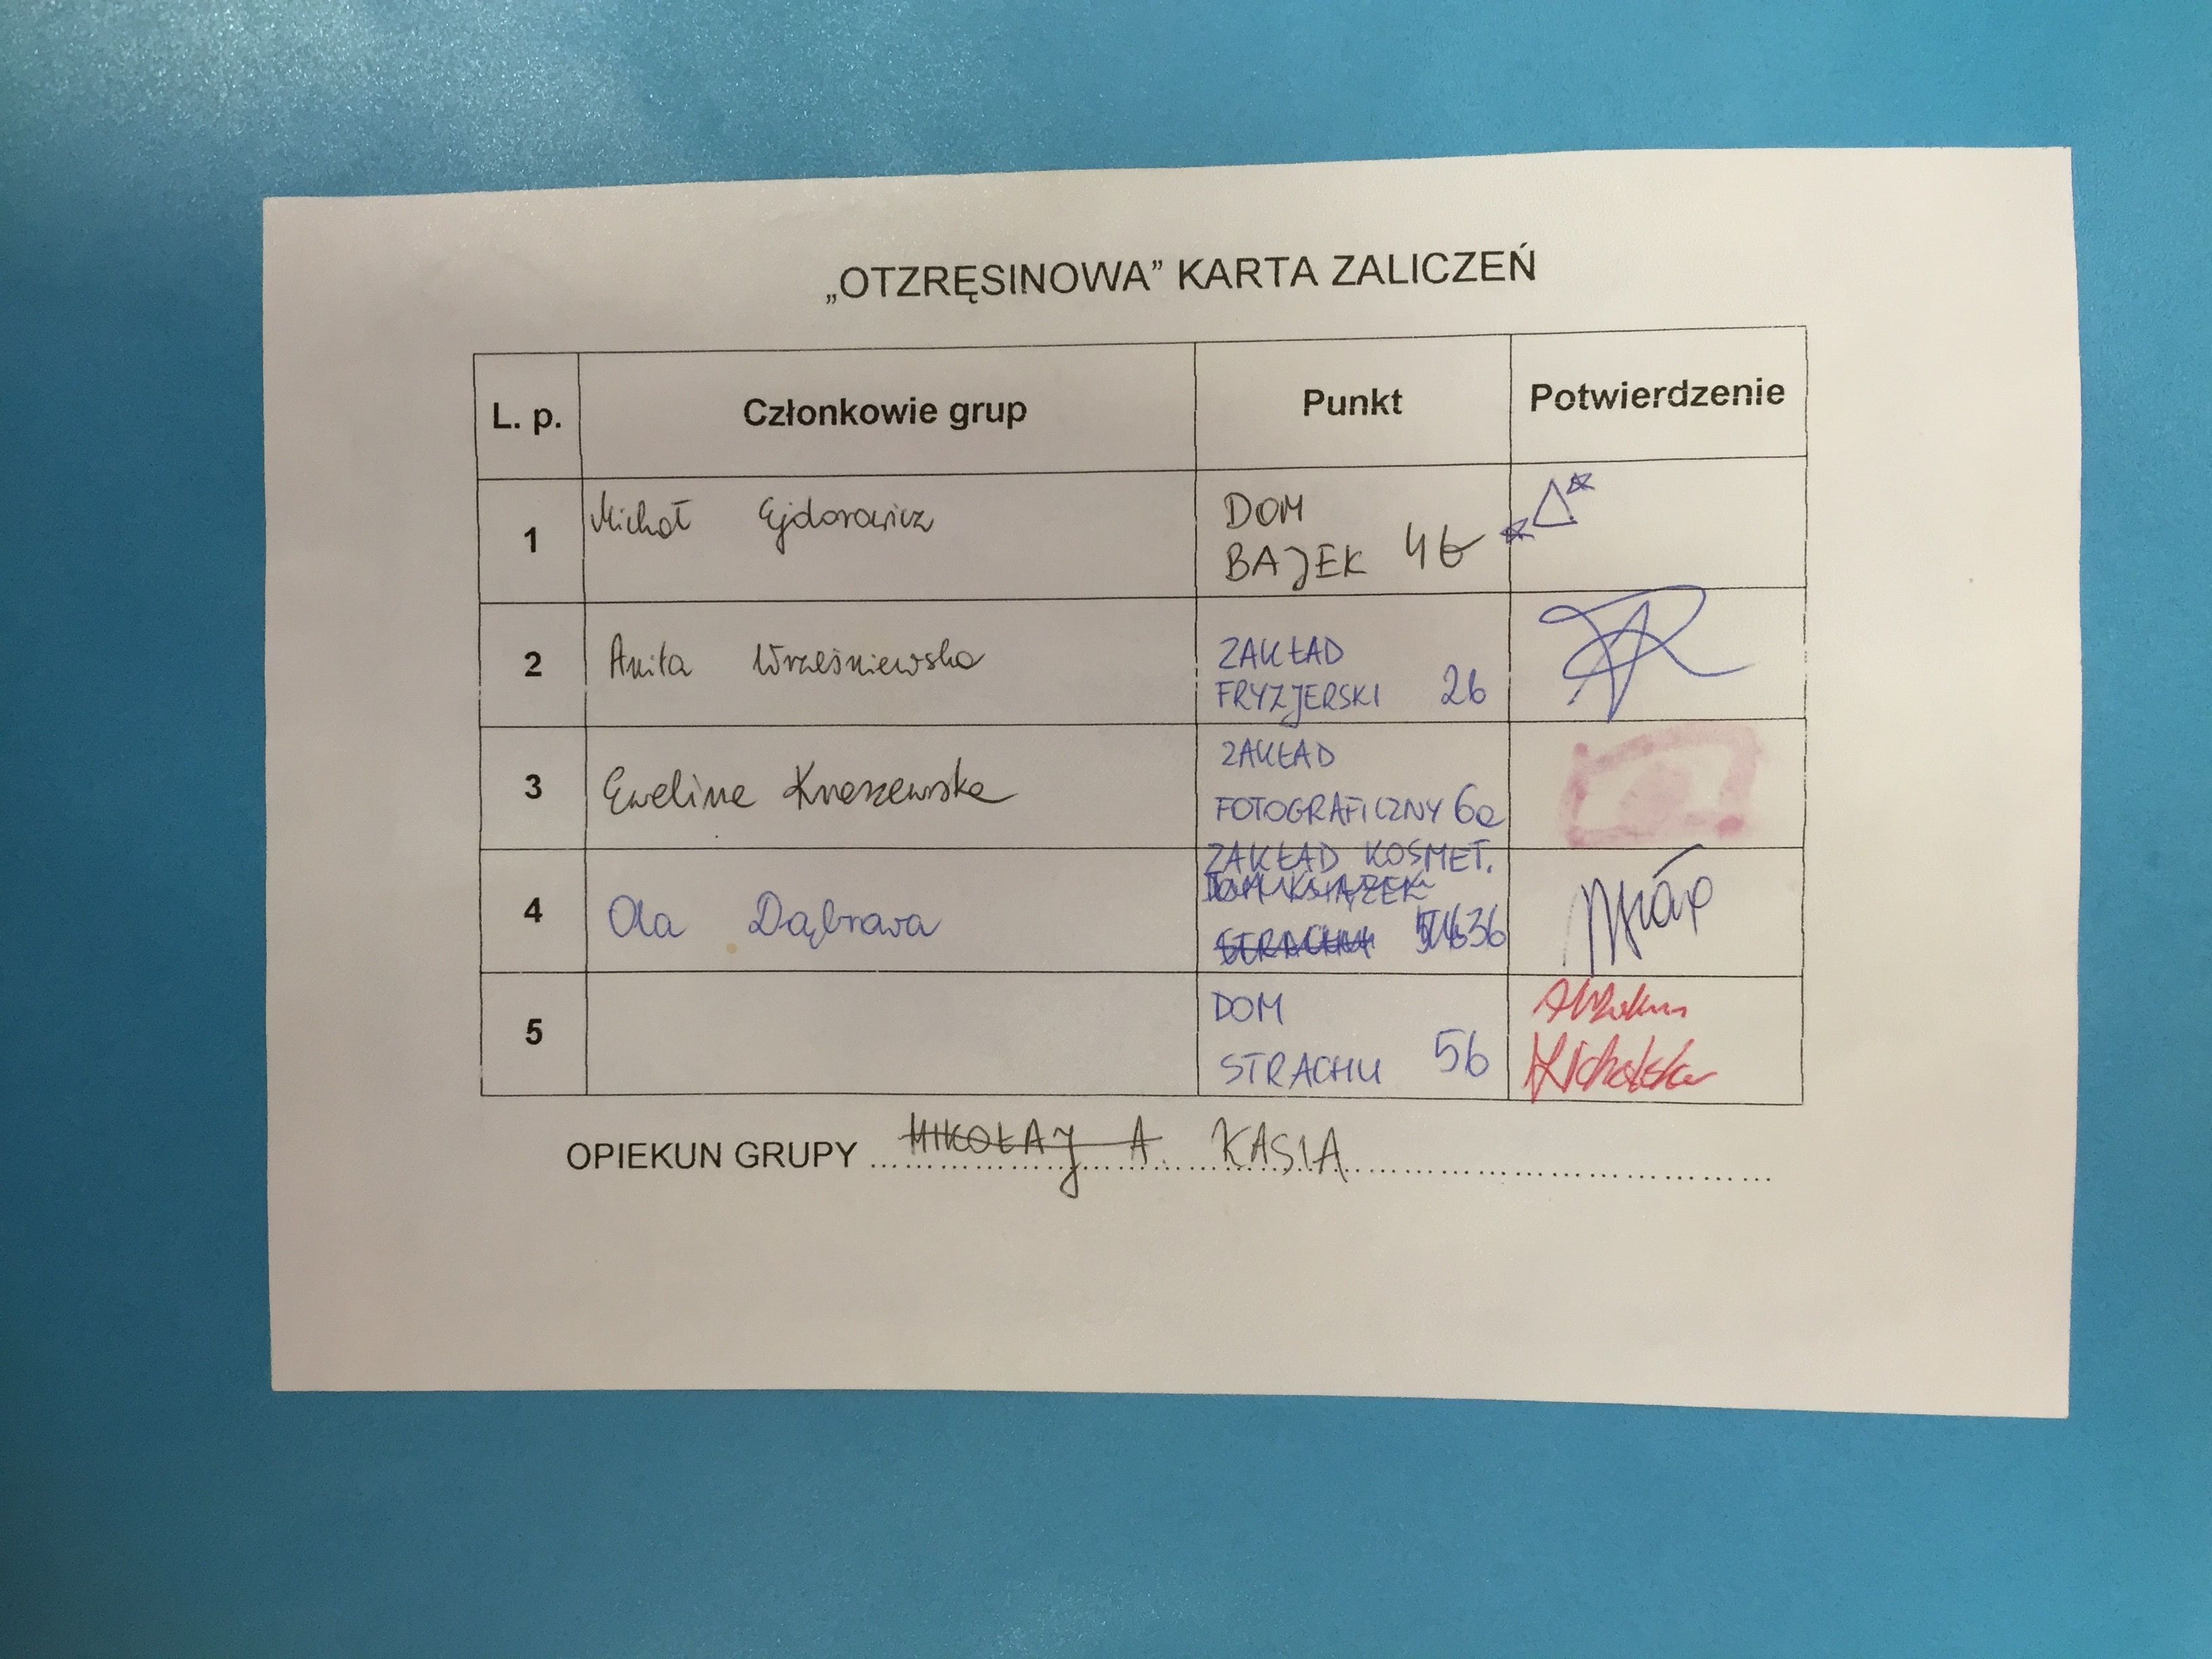 „OTZRĘSINOWA” KARTA ZALICZEŃ
L. p. Członkowie grup Punkt Potwierdzenie
1 Michał Ejdorowicz DOM
BAJEK 4b
2 Anita Wrześniewska ZAKŁAD
FRYZJERSKI 2b
3 Ewelina Kraszewska ZAKŁAD
FOTOGRAFICZNY 6a
ZAKŁAD KOSMET.
4 Ola Dąbrowa 36
5 DOM
STRACHU 5b
OPIEKUN GRUPY MIKOŁAJ A. KASIA